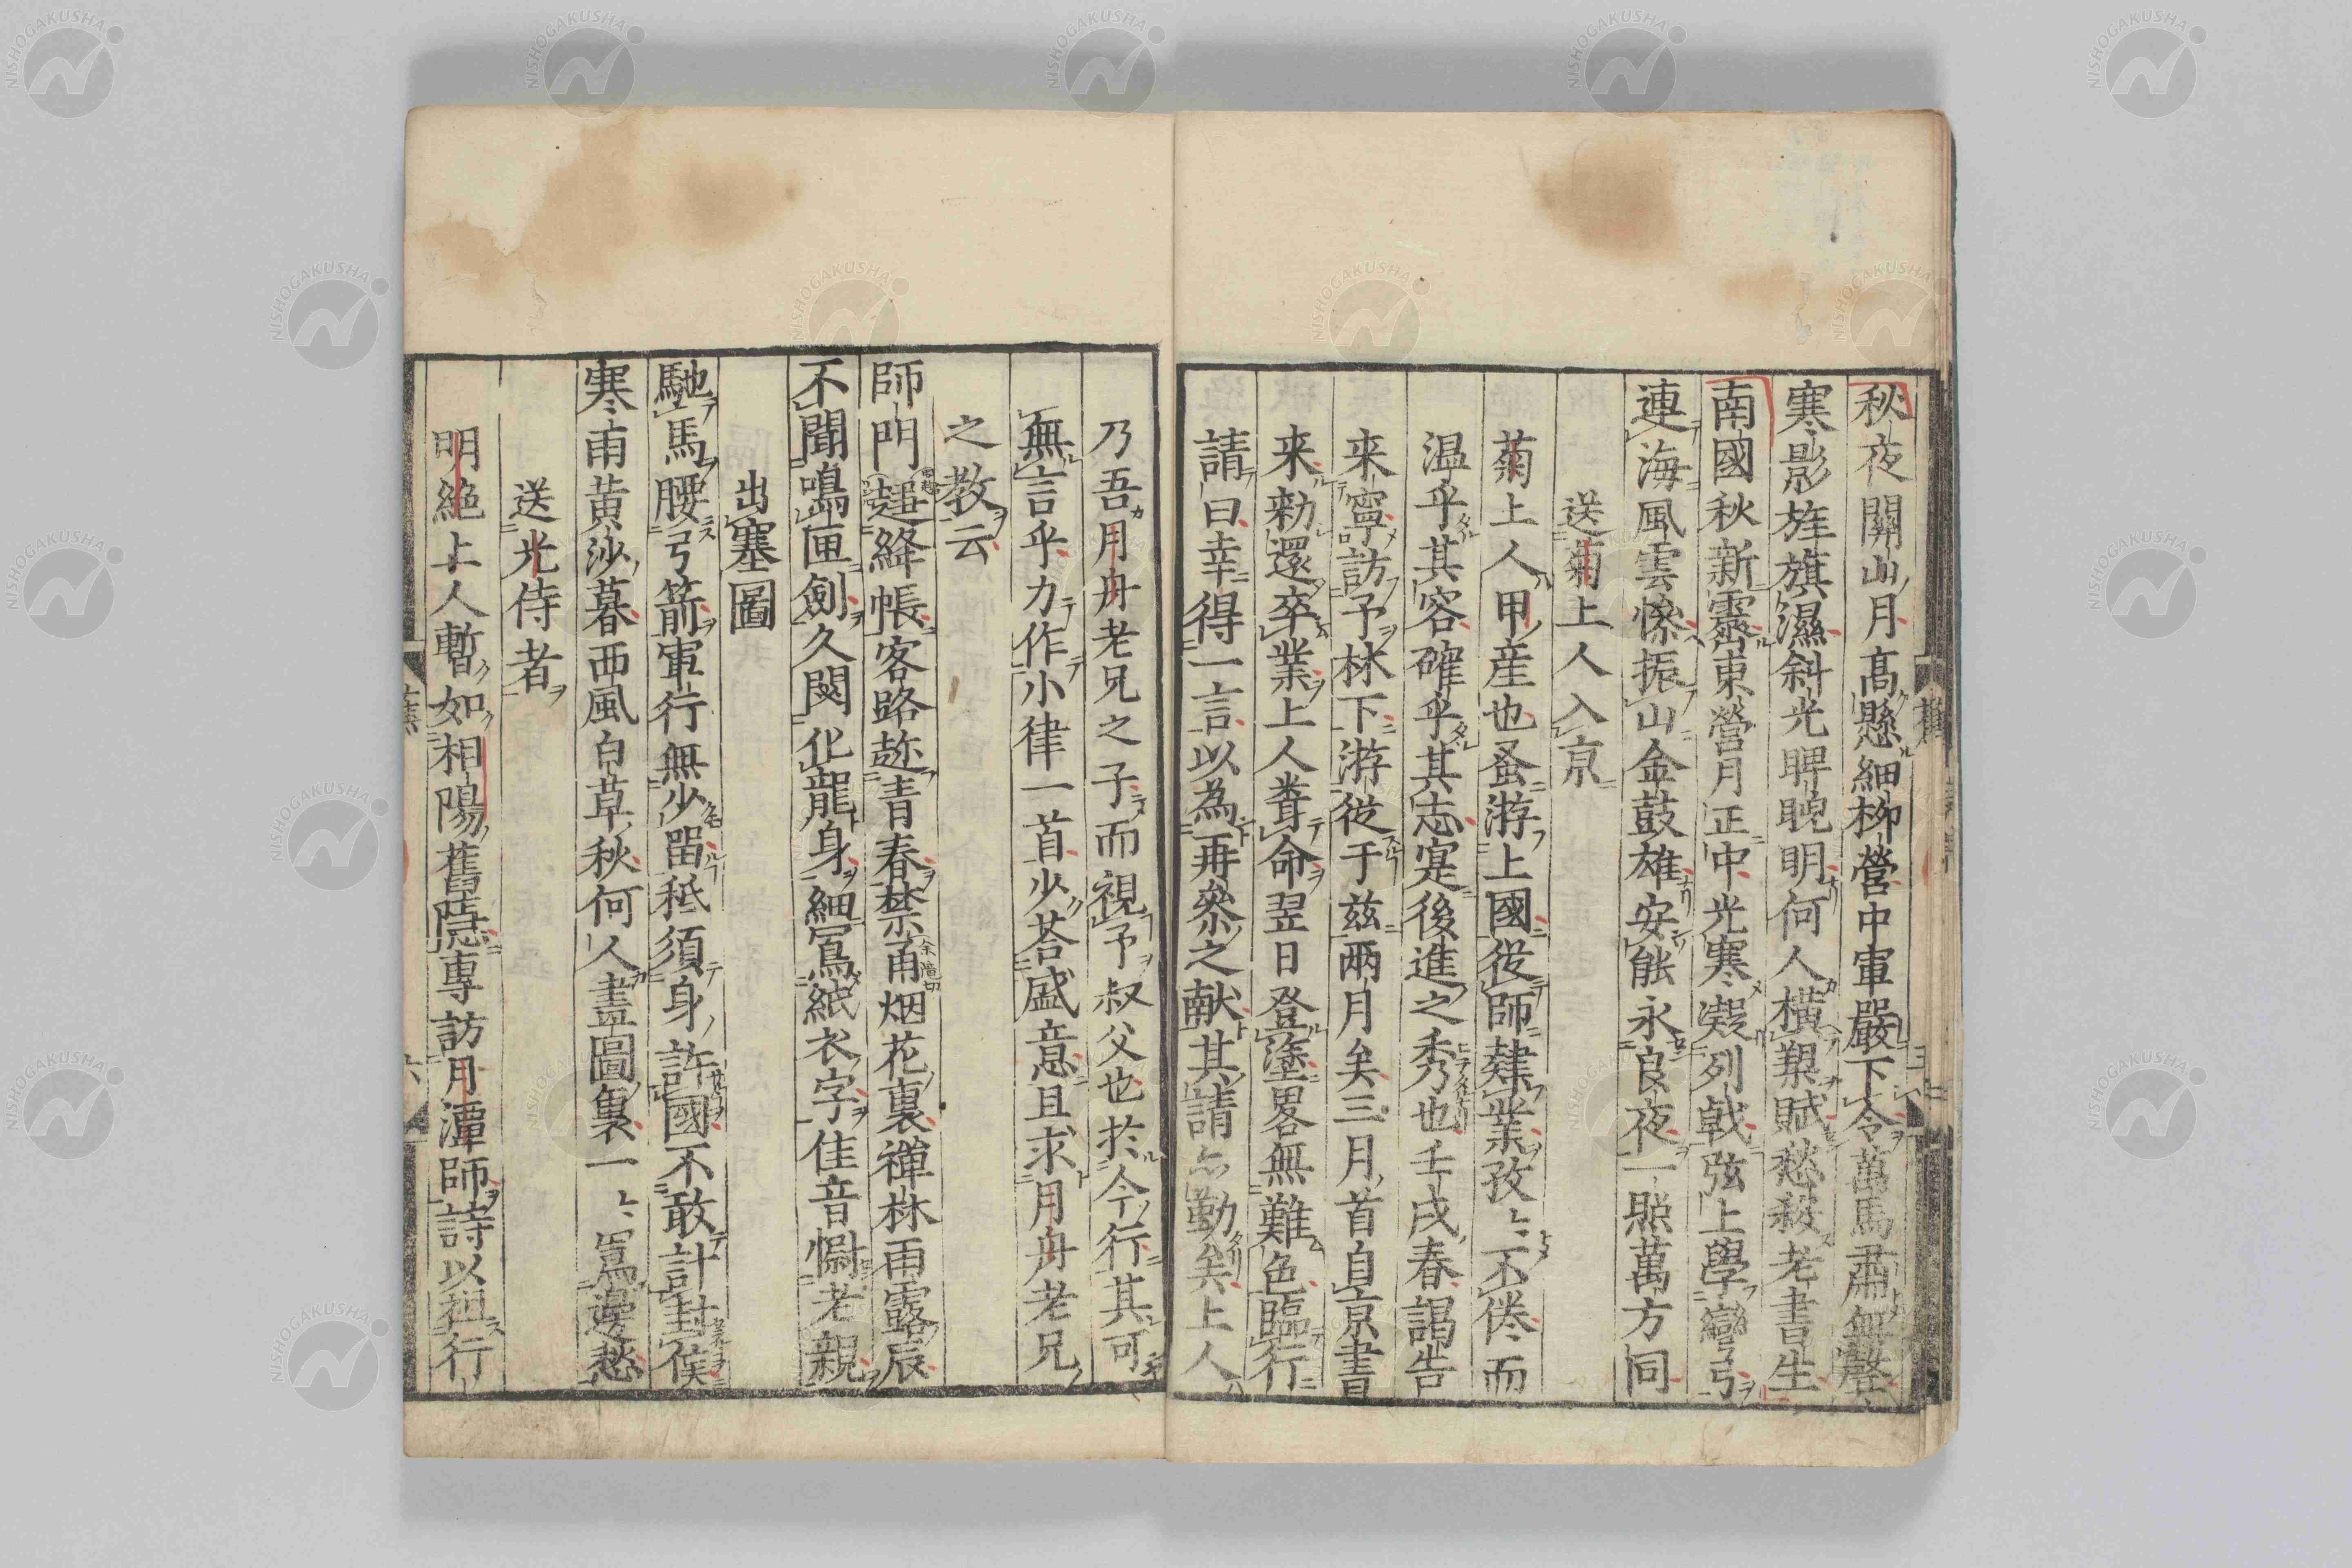 秋夜關山月高懸細柳營中軍嚴下令萬馬肅無聲
寒影旌旗濕斜光睥睨明何人橫槊賦愁殺老書生
南國秋新霽東營月正中光寒凝列戟弦上學彎弓
連海風雲慘振山金鼓雄安能永良夜一照萬方同
送菊上人入京
菊上人甲産也蚤游上國從師肄業孜〻不倦而
温乎其容確乎其志寔後進之秀也壬戌春謁告
来寧訪予林下游從于茲兩月矣三月首自京書
来勑還卒業上人聾命翌日登塗畧無難色臨行
請曰幸得一言以為再參之献其請亦勤矣上人
乃吾月舟老兄之子而視予叔父也於今行其可
無言乎力作小律一首少荅盛意且求月舟老兄
之教云
師門趨絳帳客路趂青春禁甬烟花裏禅林雨露辰
不聞鳴匣劍久閟化龍身細寫紙衣字佳音慰老親
出塞圖
馳馬腰弓箭軍行無少留秖須身許國不敢計封侯
寒雨黄沙暮西風白草秋何人畫圖裏一〻寫邊愁
送光侍者
明絶上人暫如相陽舊隠專訪月潭師詩以祖行
NISHOGAKUSHA